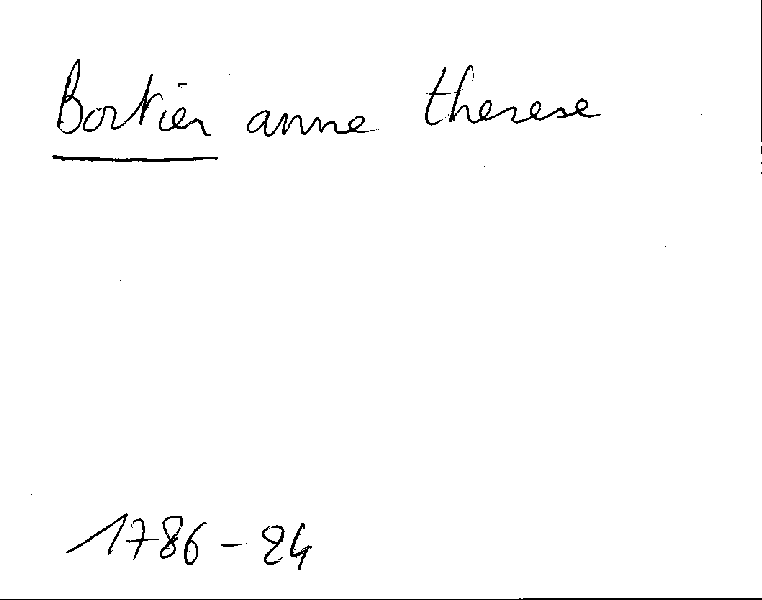 Bortier anne therese
1786-24